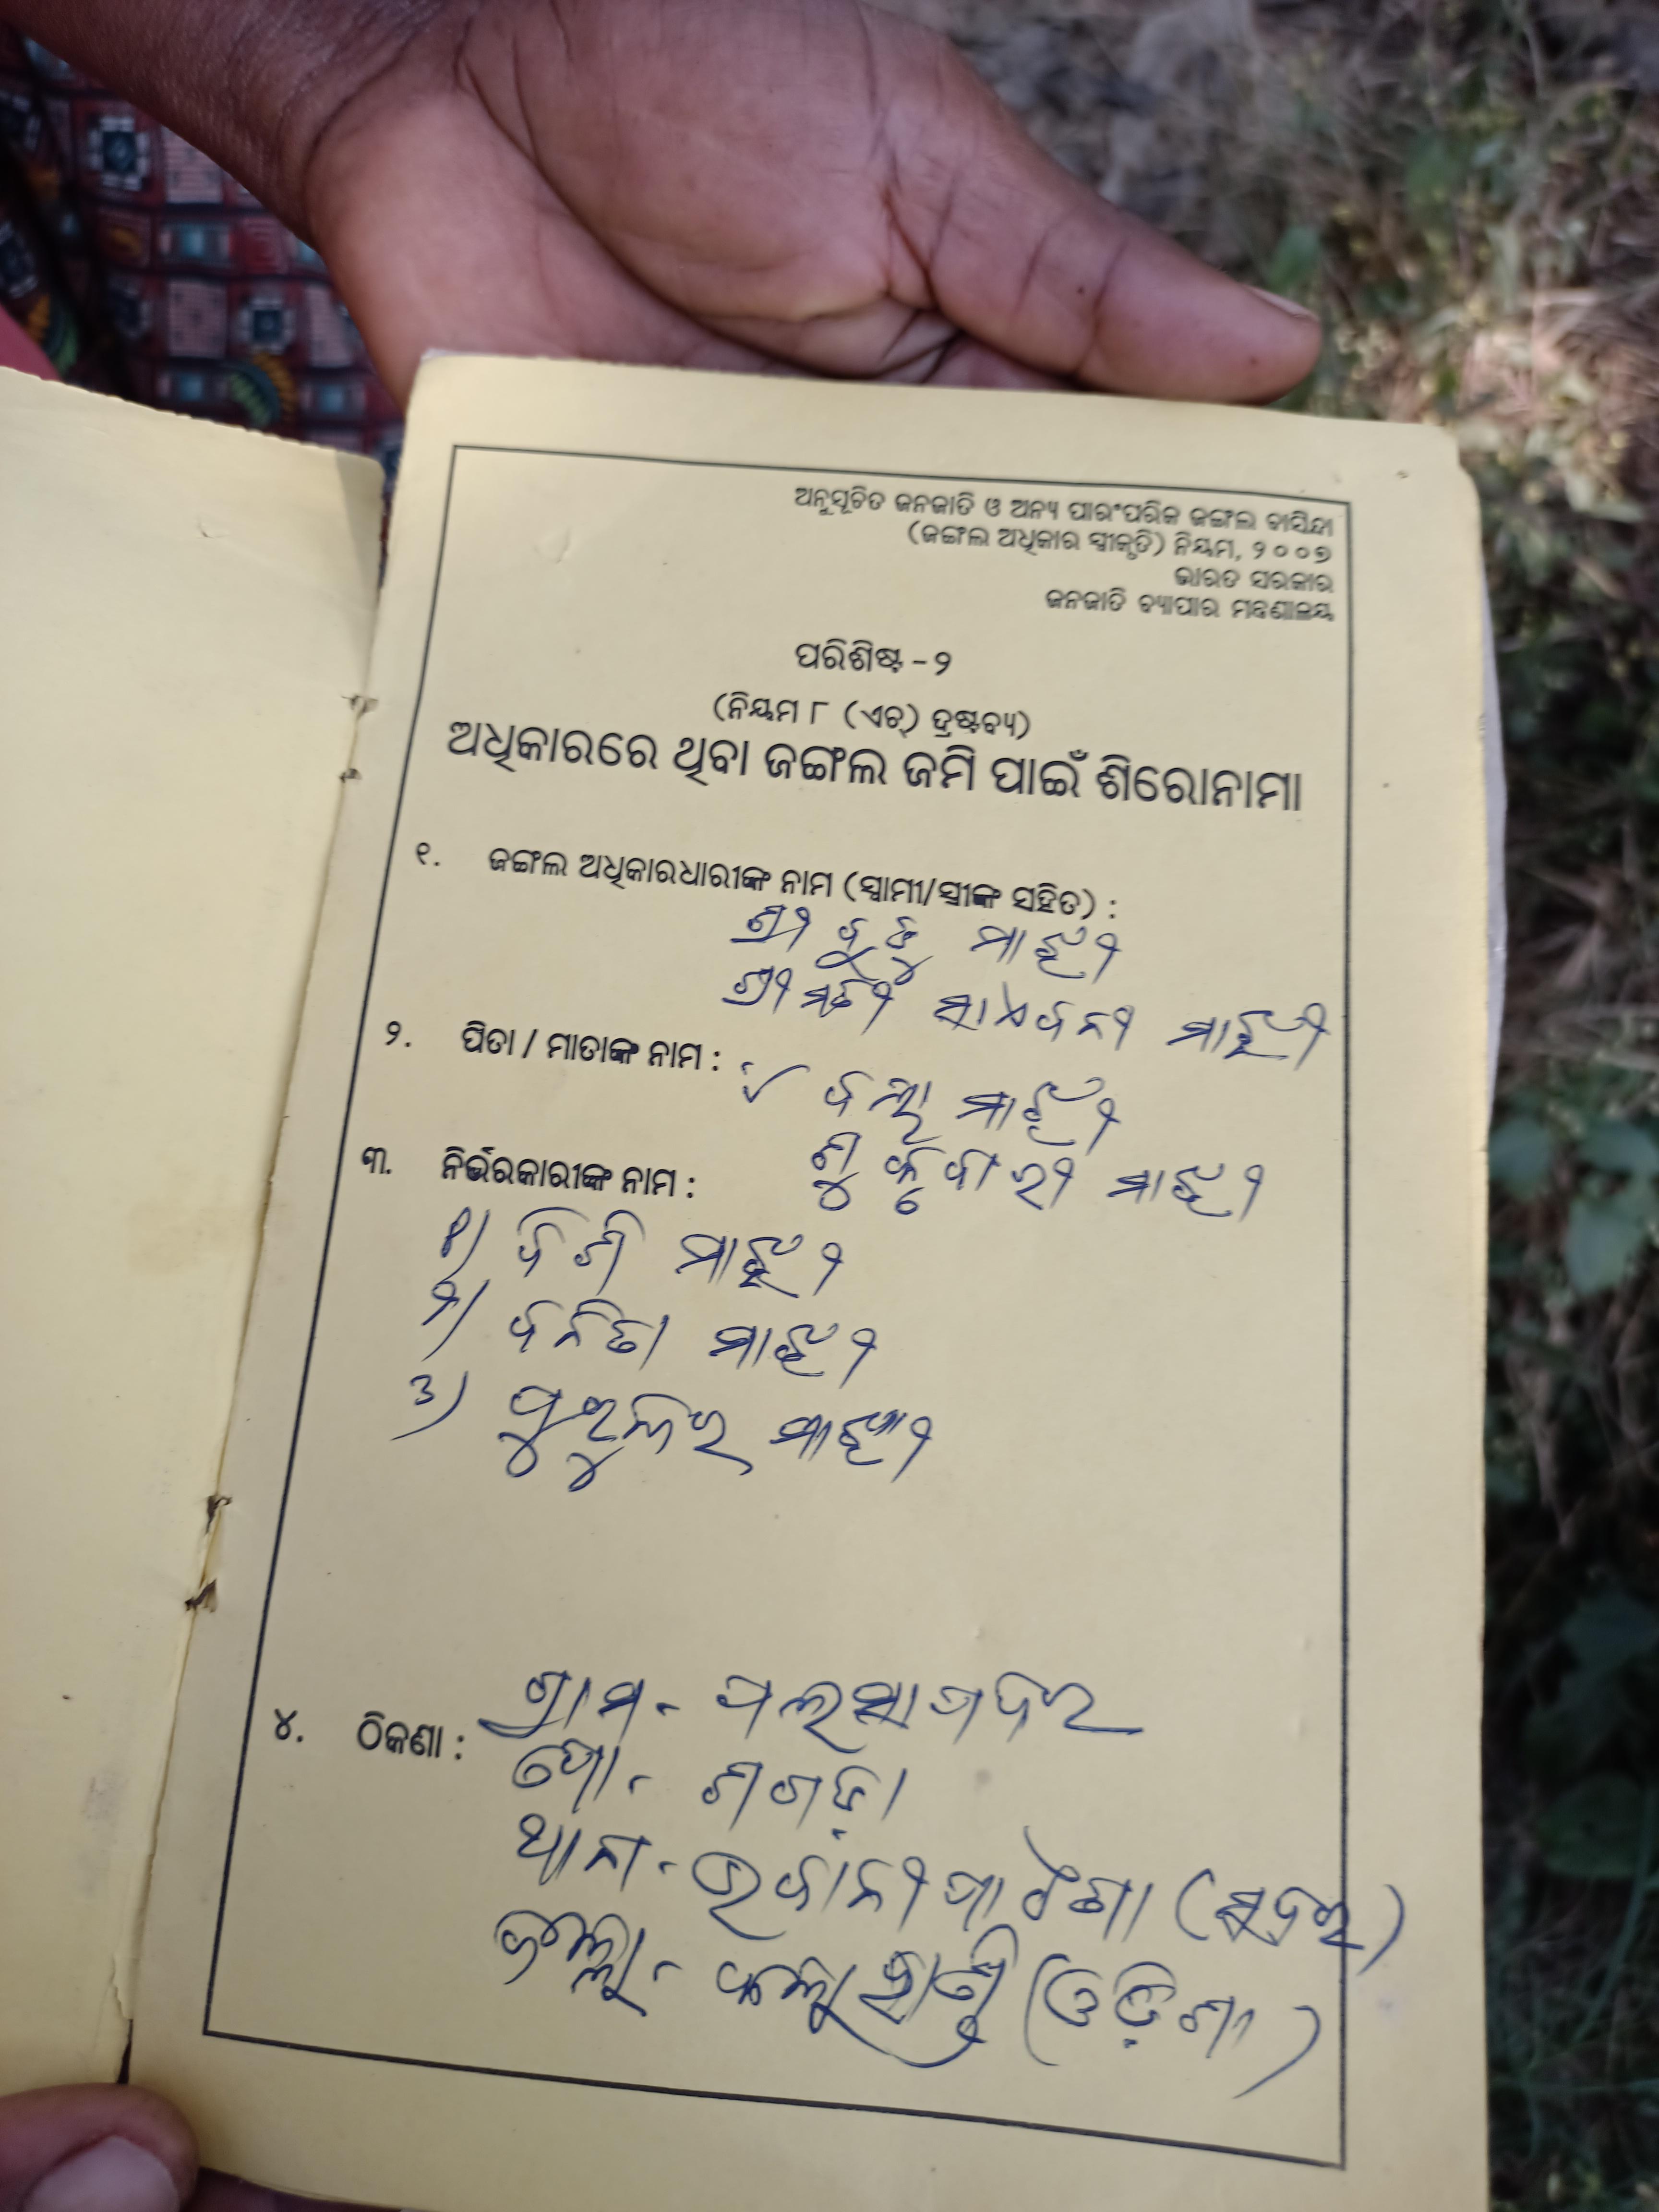 ଅନୁସୂଚିତ ଜନଜାତି ଓ ଅନ୍ୟ ପାରଂପରିକ ଜଙ୍ଗଲ ବାସିନ୍ଦା
(ଜଙ୍ଗଲ ଅଧିକାର ସ୍ୱୀକୃତି) ନିୟମ, ୨୦୦୭
ଭାରତ ସରକାର
ଜନଜାତି ବ୍ୟାପାର ମନ୍ତ୍ରଣାଳୟ
ପରିଶିଷ୍ଟ - ୨
(ନିୟମ ୮ (ଏଚ୍) ଦ୍ରଷ୍ଟବ୍ୟ)
ଅଧିକାରରେ ଥିବା ଜଙ୍ଗଲ ଜମି ପାଇଁ ଶିରୋନାମା
୧. ଜଙ୍ଗଲ ଅଧିକାରଧାରୀଙ୍କ ନାମ (ସ୍ୱାମୀ/ସ୍ତ୍ରୀଙ୍କ ସହିତ) :
ଶ୍ରୀ ବୁଢୁ ମାଝୀ
ଶ୍ରୀମତୀ ମାଝୀ
୨. ପିତା / ମାତାଙ୍କ ନାମ :
ମାଝୀ
ଶୁକ୍ରବାରୀ ମାଝୀ
୩. ନିର୍ଭରକାରୀଙ୍କ ନାମ :
୧) ମାଝୀ
୨) ବନିତା ମାଝୀ
୩) ମାଝୀ
୪. ଠିକଣା : ଗ୍ରାମ -
ପୋ - ଶଗଡ଼ା
ଥାନା - ଭବାନୀପାଟଣା (ସଦର)
ଜିଲ୍ଲା - କଳାହାଣ୍ଡି (ଓଡ଼ିଶା)